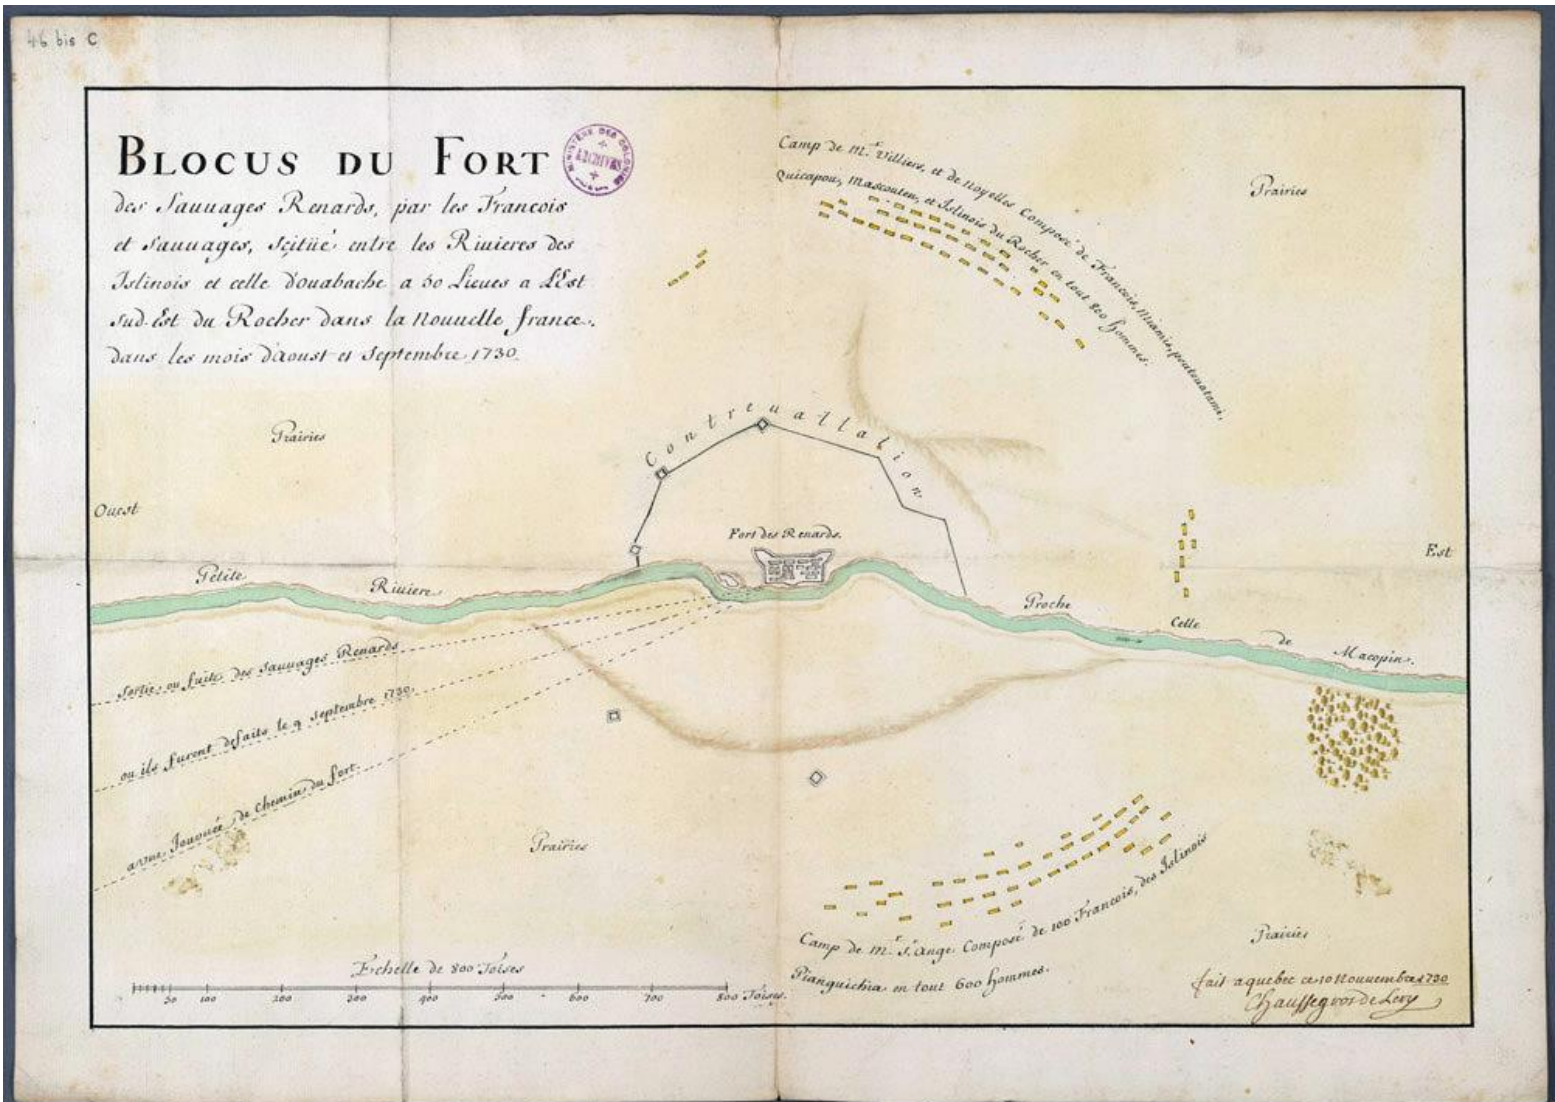 46 bis C
BLOCUS DU FORT
des Sauuages Renards, par les Francois
et Sauuages, Scitüé entre les Riuieres des
Islinois et celle d'ouabache a 50 Lieues a L'Est
Sud-Est du Rocher dans la Nouuelle france.
dans les mois d'aoust et Septembre 1730.
MINISTÈRE DES COLONIES
ARCHIVES
Camp de Mr. Villiers, et de Noyelles Composé de Francois, Miamis, pouteouatami,
Quicapou, Mascouten, et Islinois du Rocher en tout 800 hommes.
Prairies
Prairies
Contreuallation
Ouest
Fort des Renards.
Est
Petite Riuiere Proche Celle de Macopin.
Sortie ou fuite des Sauuages Renards
ou ils furent defaits le 9 Septembre 1730.
a une Journée de Chemin du fort.
Prairies
Camp de Mr. St. Ange Composé de 100 Francois, des Islinois
Pianguichia en tout 600 hommes.
Prairies
Echelle de 800 Toises
50 100 200 300 400 500 600 700 800 Toises.
fait a quebec ce 10 Nouuembre 1730
Chaussegros de Lery